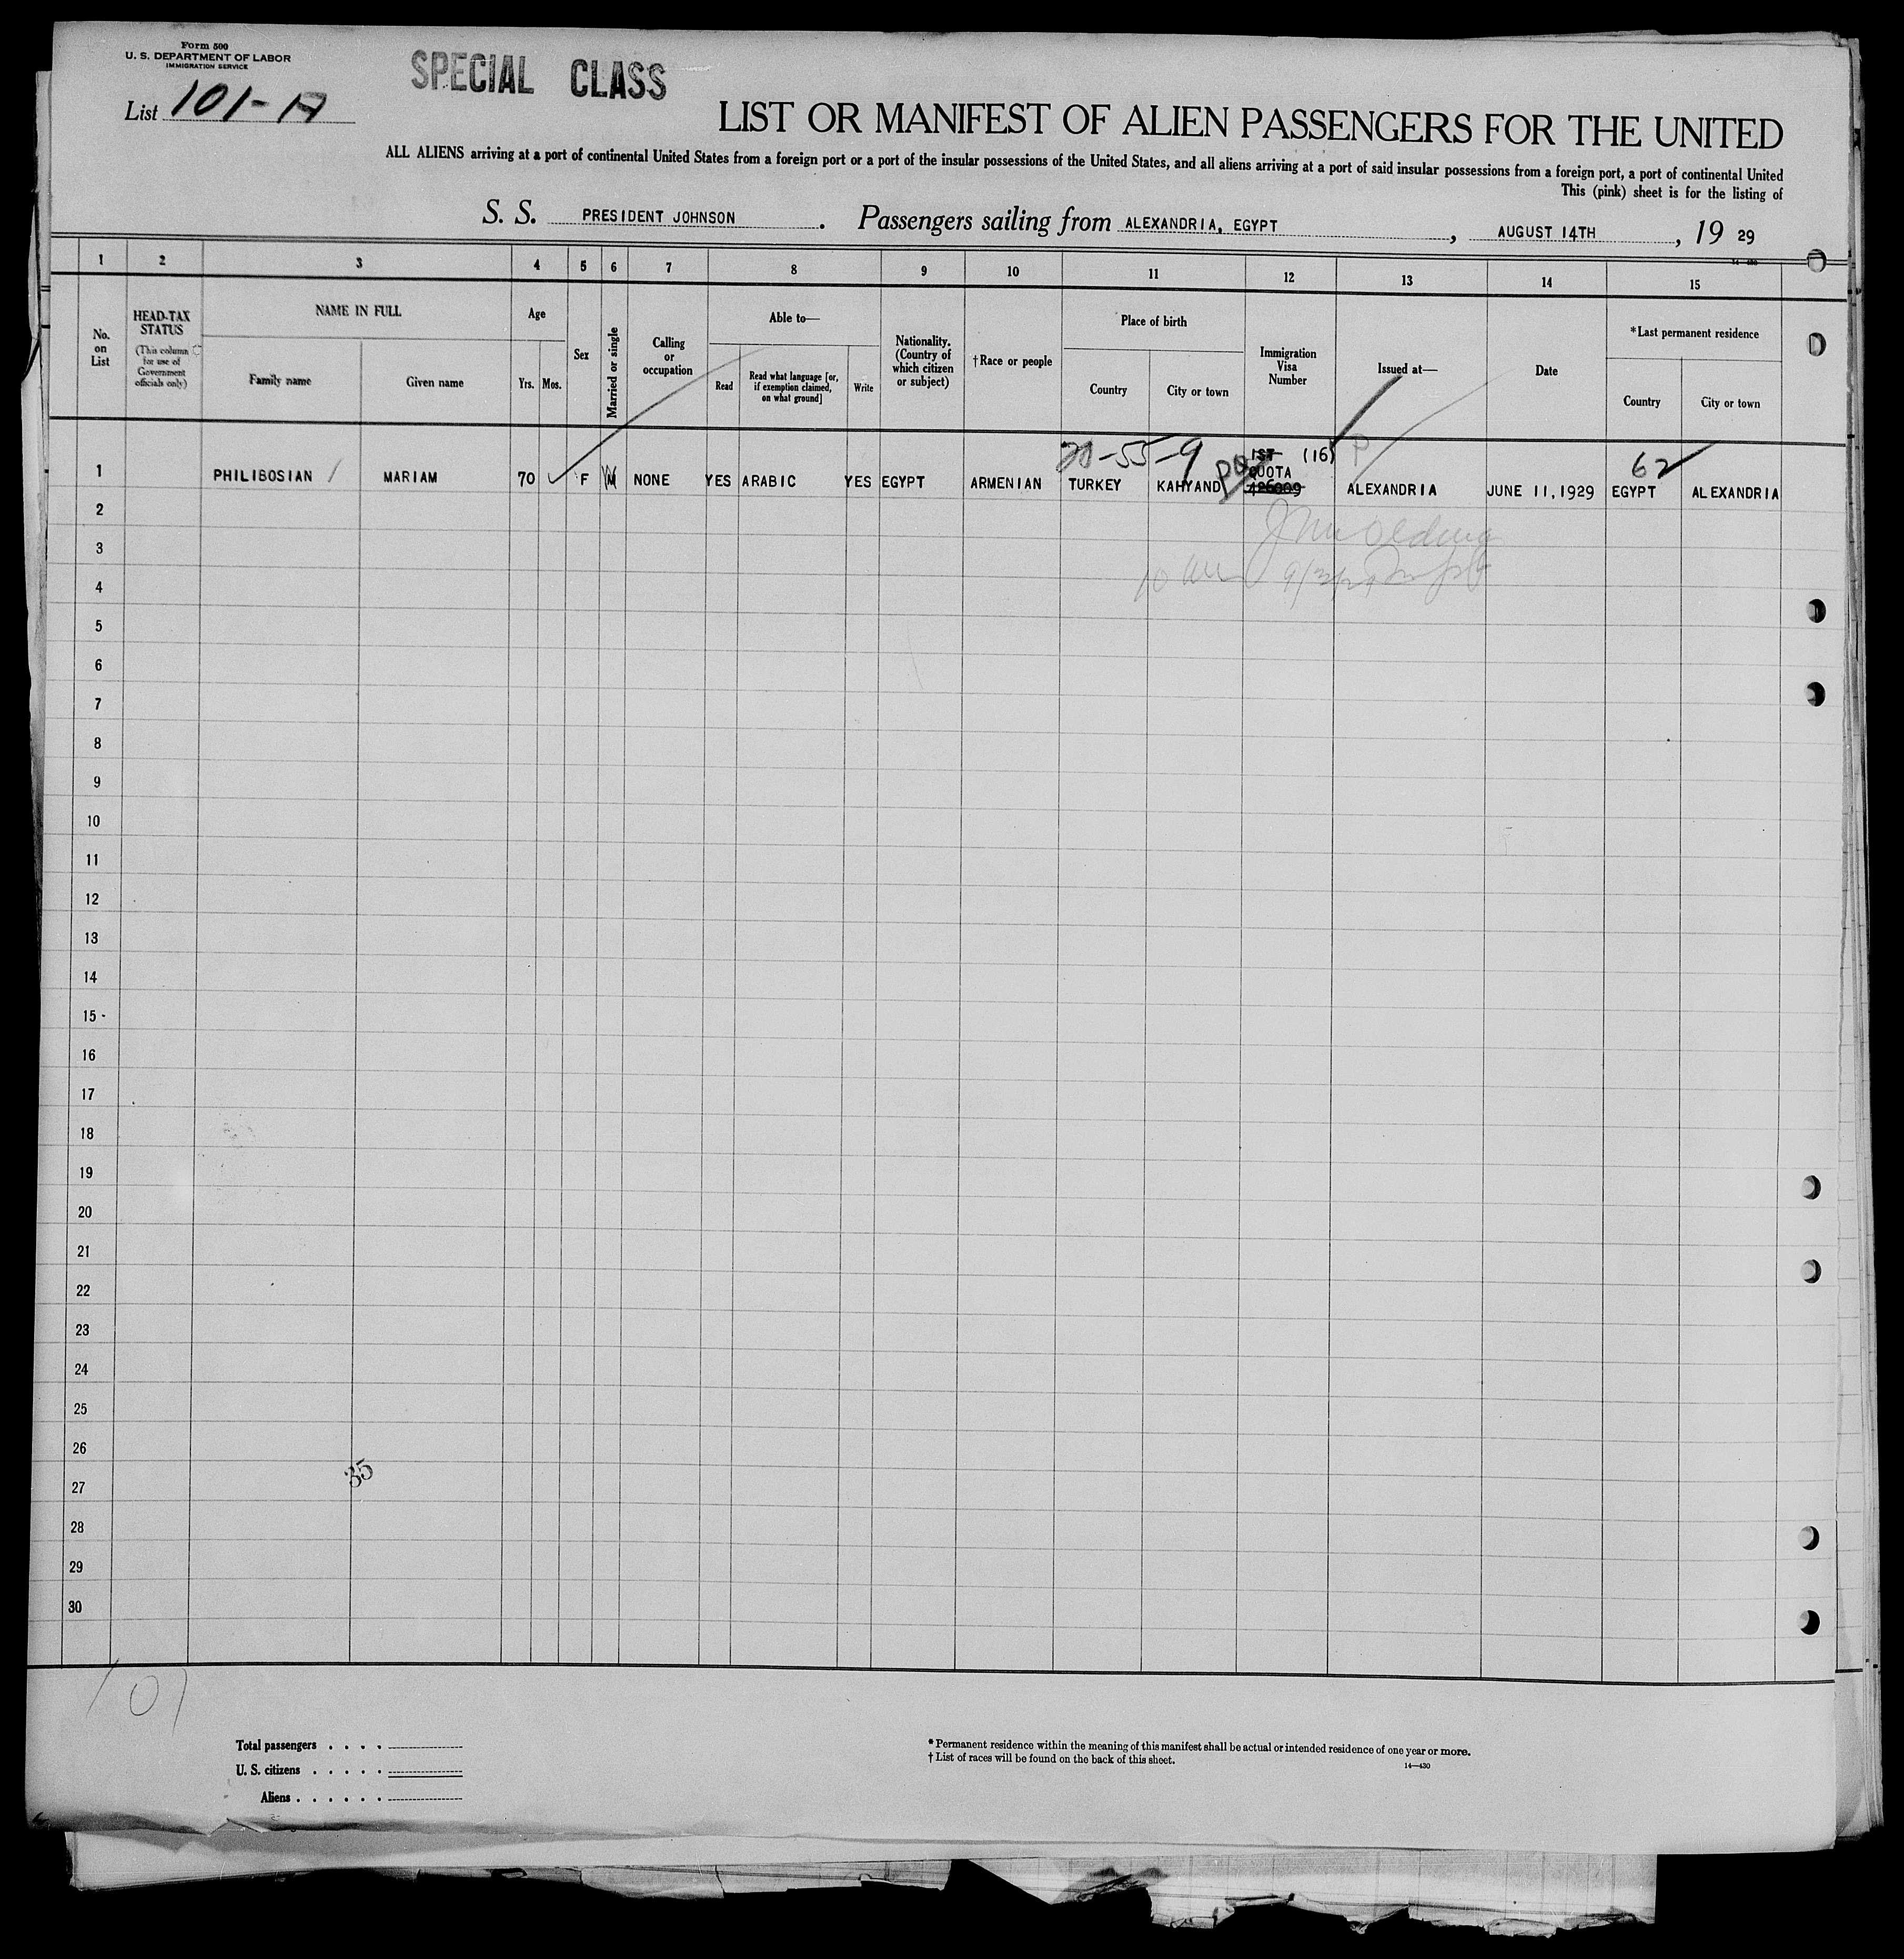 Form 500
U. S. DEPARTMENT OF LABOR
IMMIGRATION SERVICE
SPECIAL CLASS
List 101-A
LIST OR MANIFEST OF ALIEN PASSENGERS FOR THE UNITED
ALL ALIENS arriving at a port of continental United States from a foreign port or a port of the insular possessions of the United States, and all aliens arriving at a port of said insular possessions from a foreign port, a port of continental United
This (pink) sheet is for the listing of
S. S. PRESIDENT JOHNSON. Passengers sailing from ALEXANDRIA, EGYPT, AUGUST 14TH, 19 29
1 2 3 4 5 6 7 8 9 10 11 12 13 14 15
No. on List
HEAD-TAX STATUS
(This column for use of Government officials only)
NAME IN FULL
Family name
Given name
Age
Yrs.
Mos.
Sex
Married or single
Calling or occupation
Able to—
Read
Read what language [or, if exemption claimed, on what ground]
Write
Nationality. (Country of which citizen or subject)
†Race or people
Place of birth
Country
City or town
Immigration Visa Number
Issued at—
Date
*Last permanent residence
Country
City or town
20-55-9
1ST (16) P
QUOTA
62
1 PHILIBOSIAN MARIAM 70 F M NONE YES ARABIC YES EGYPT ARMENIAN TURKEY KAHYAND 426009 ALEXANDRIA JUNE 11,1929 EGYPT ALEXANDRIA
2
3
4
5
6
7
8
9
10
11
12
13
14
15
16
17
18
19
20
21
22
23
24
25
26
35
27
28
29
30
101
Total passengers . . . .
U. S. citizens . . . . .
Aliens . . . . . .
*Permanent residence within the meaning of this manifest shall be actual or intended residence of one year or more.
†List of races will be found on the back of this sheet.
14—430